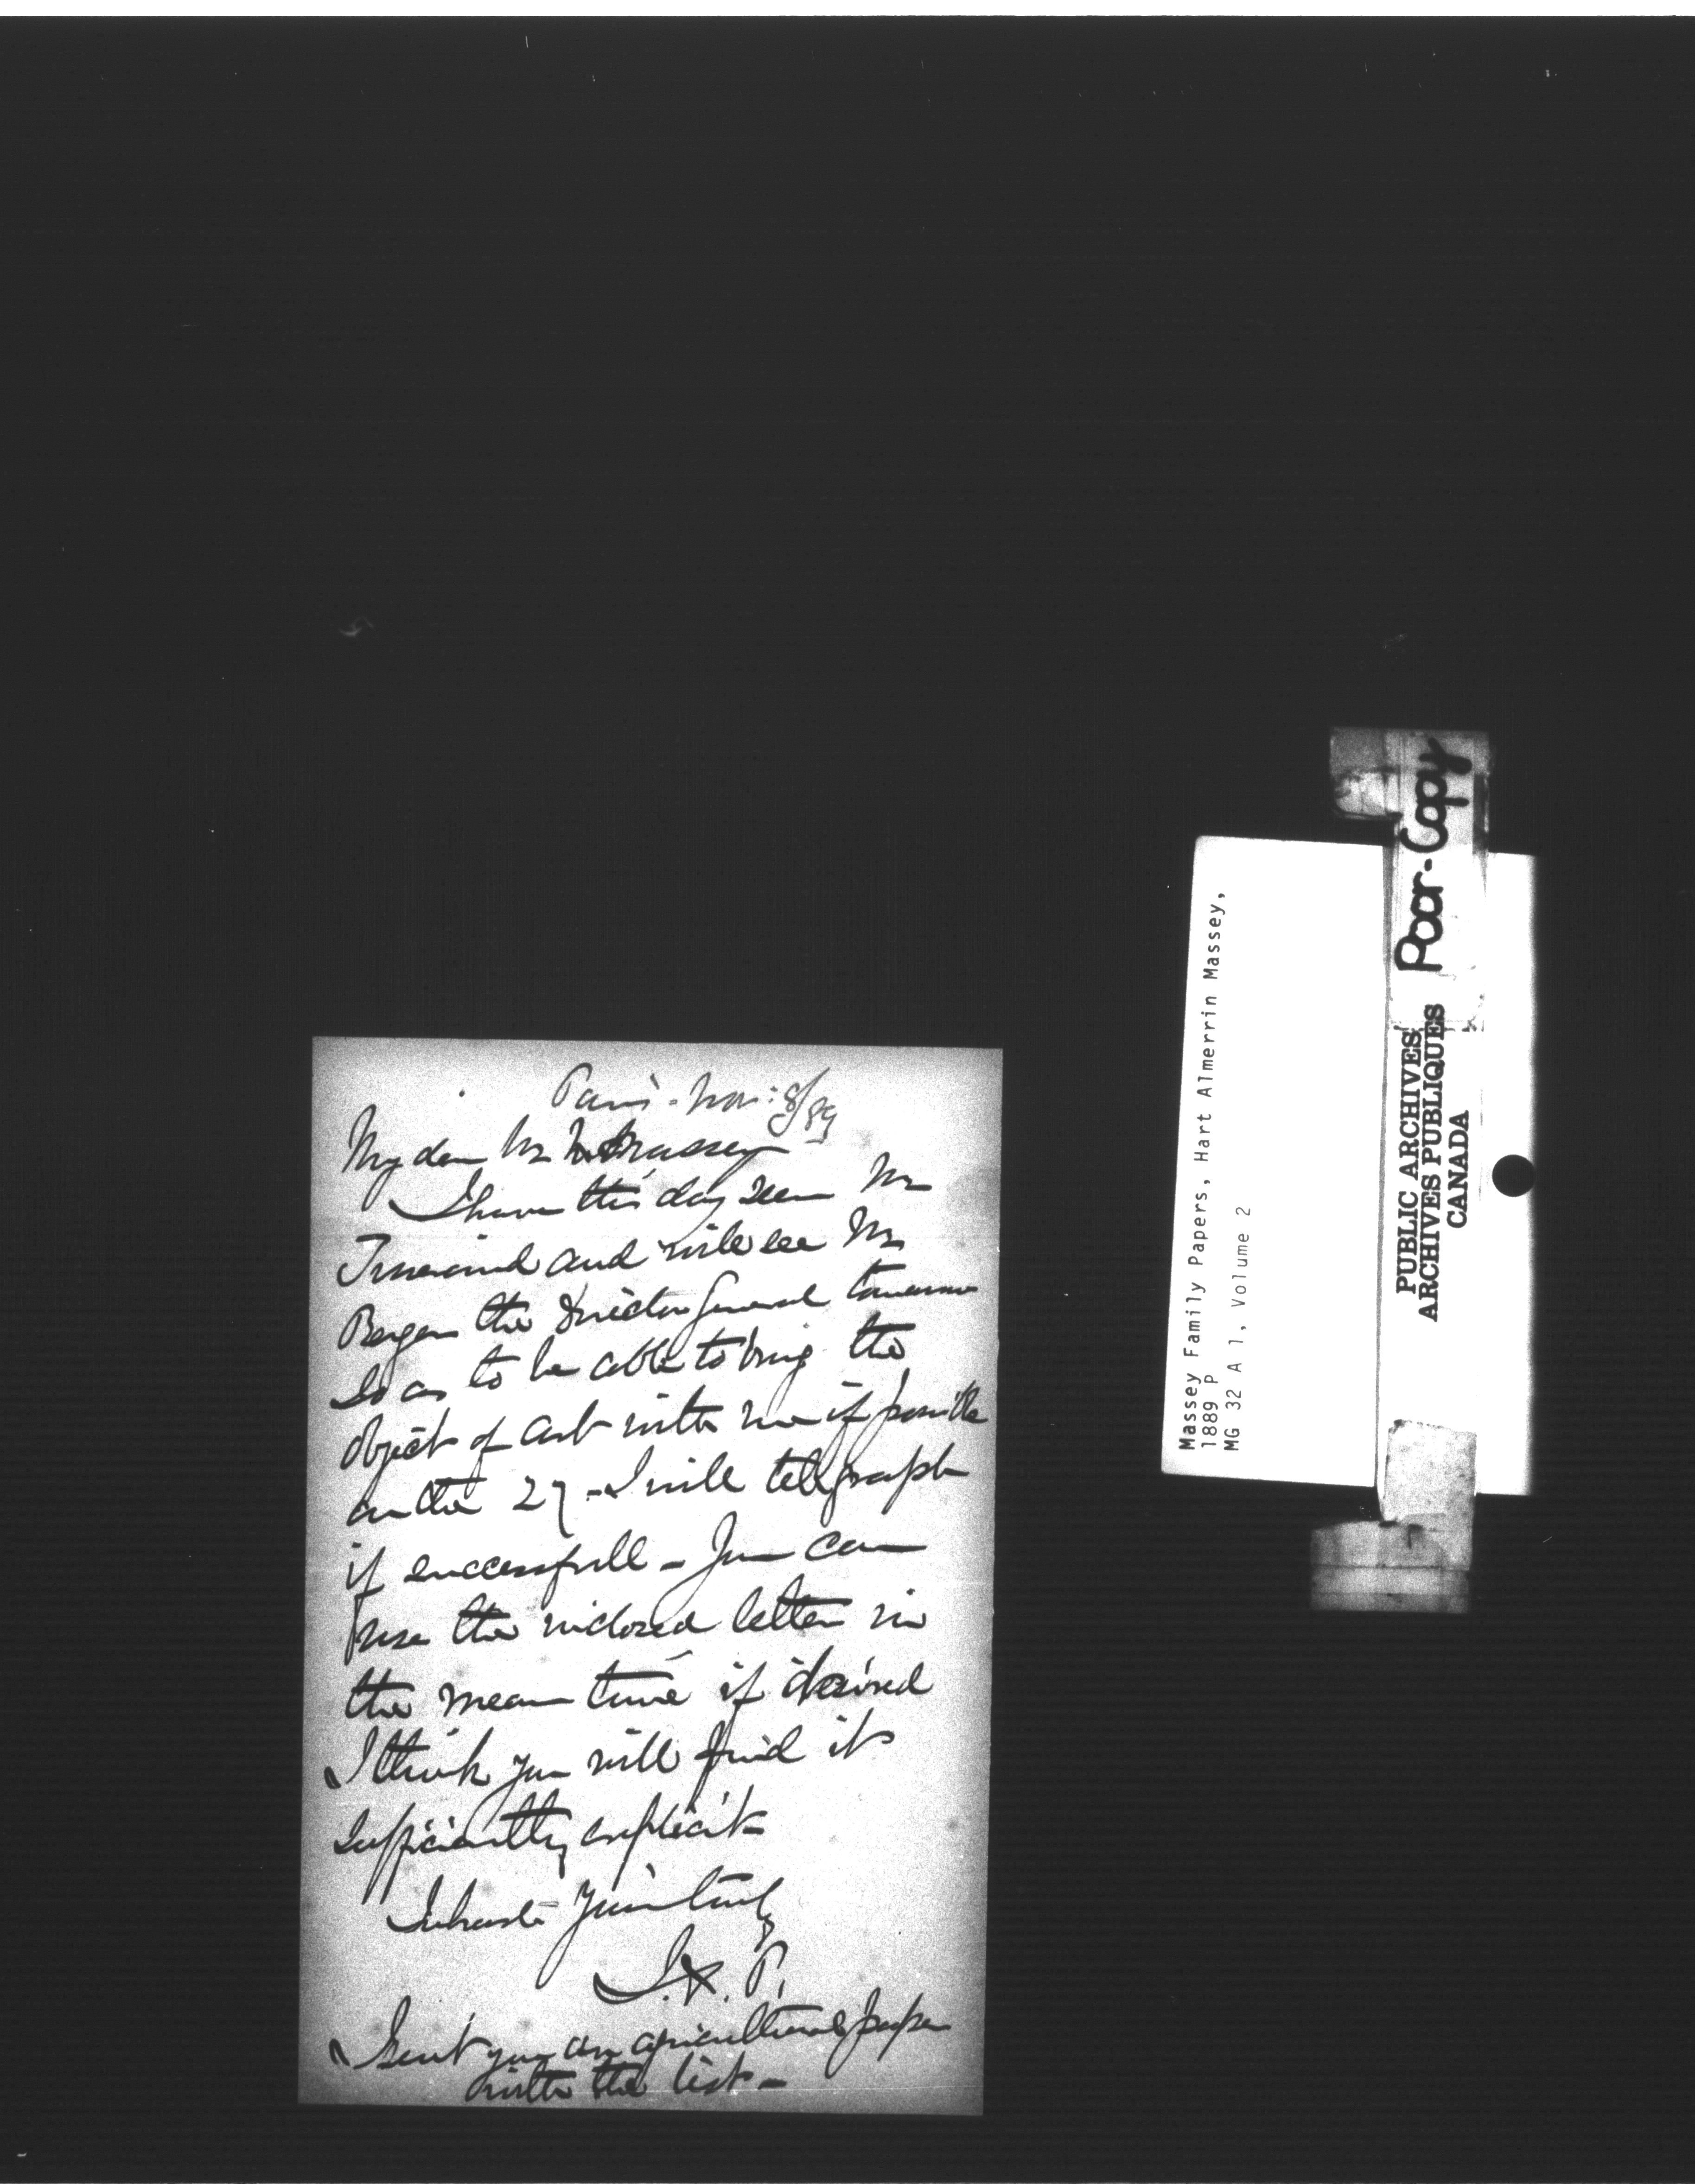 Paris - Nov: 8/89
My dear Mr Massey
I have this day seen Mr
Tisserand and will see Mr
Berger the Director General tomorrow
so as to be able to bring the
object of art with me if possible
on the 27 - I will telegraph
if successfull - You can
use the inclosed letter in
the mean time if desired
I think you will find it
sufficiently explicit -
In haste Yours truly
I.X. P.
I sent you an agricultural paper
with the list -
Massey Family Papers, Hart Almerrin Massey,
1889 P
MG 32 A 1, Volume 2
Poor-Copy
PUBLIC ARCHIVES
ARCHIVES PUBLIQUES
CANADA